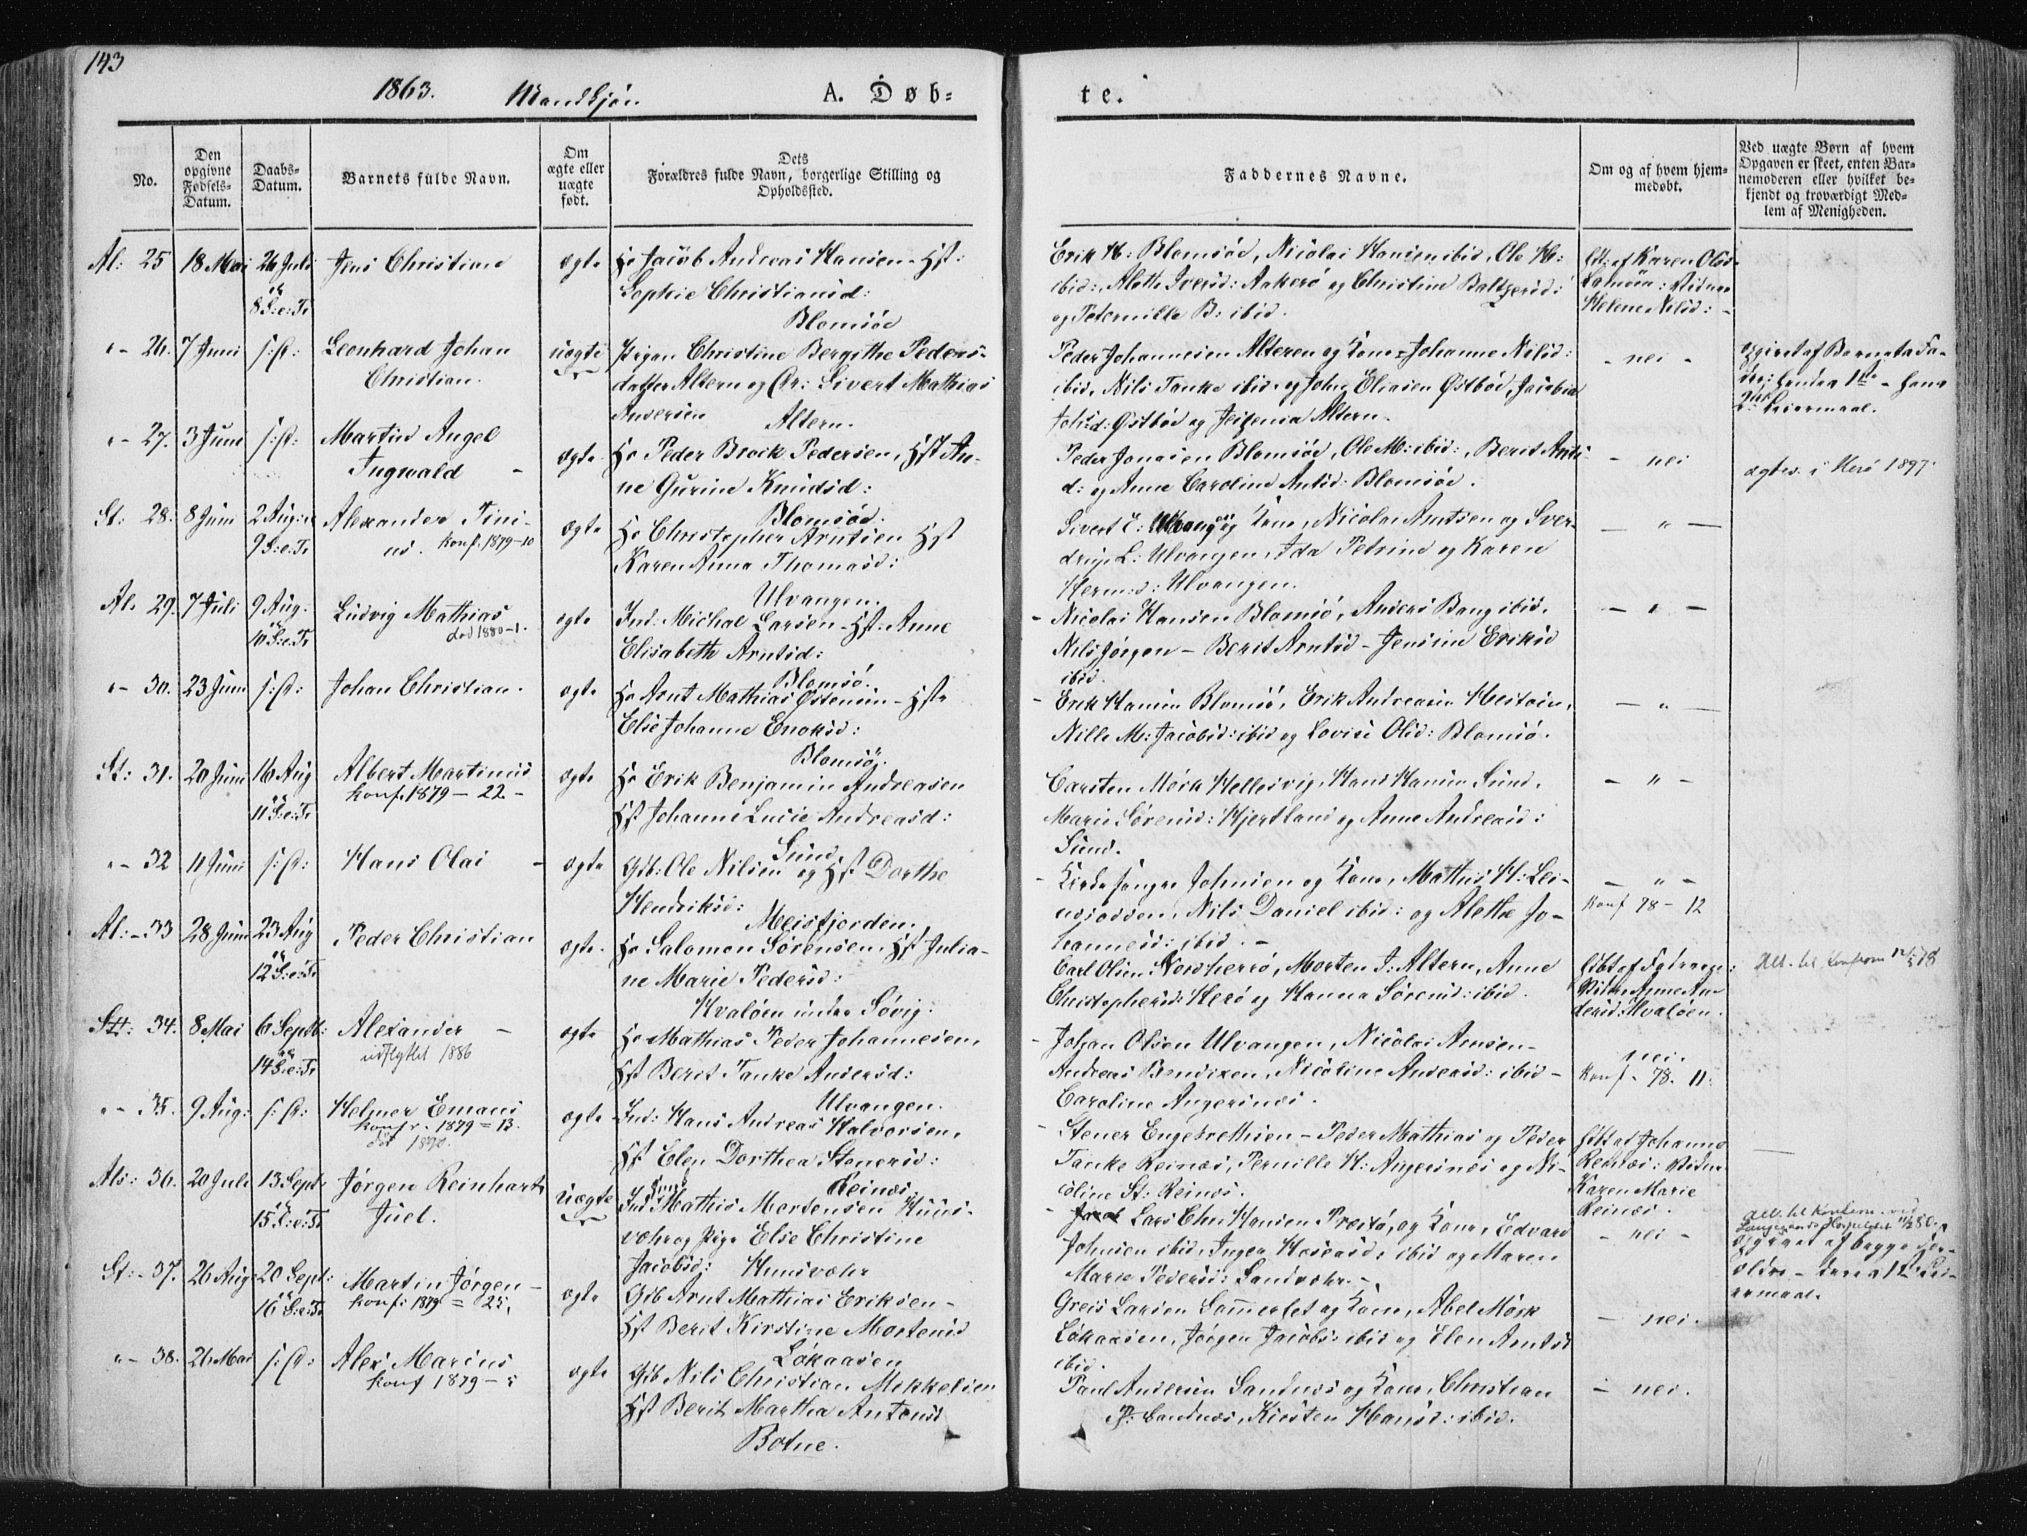 143
1863. Mandkjøn A. Døb- te.
No.
Den opgivne Fødsels-Datum.
Daabs-Datum.
Barnets fulde Navn.
Om ægte eller uægte født.
Dets Forældres fulde Navn, borgerlige Stilling og Opholdssted.
Faddernes Navne.
Om og af hvem hjemmedøbt.
Ved uægte Børn af hvem Opgaven er skeet, enten Barnemoderen eller hvilket bekjendt og troværdigt Medlem af Menigheden.
Al: 25 18 Mai 26 Juli Jens Christian ægte Ho Jacob Andreas Hansen - Hst:
8 S: e: Tr Sophie Christiansd:
Blomsöe
Erik H: Blomsöe, Nicolai Hansen ibid, Ole H:
ibid:, Alethe Iversd: Aakerö og Christine Baltzersd:
og Peternille B: ibid.
af Karen Olsd
Helene Nilsd:
"- 26. 7 Juni s: D: Leonhard Johan uægte Pigen Christine Bergithe Peders-
Christian. datter Altern og Gr: Sivert Mathias
Andersen Altern.
Peder Johannesen Alteren og Kone, Johanne Nilsd:
ibid, Nils Tanke ibid. og John Eliasen Östbøe, Jacobine
Johsd: Østbøe og Altern.
- nei -
opgivet af Barnets Fa-
der: hendes 1ste - hans
2det Leiermaal.
"- 27. 3 Juni s: D: Martin Angel ægte Ho Peder Brock Pedersen, Hst An-
Ingwald - ne Gurine Knudsd:
Blomsöe.
Peder Jonasen Blomsöe, Ole M: ibid:, Berit Ants-
d: og Anne Caroline Antsd. Blomsöe.
- nei
ægtev. i Herö 1897.
St: 28. 8 Juni 2 Aug: Alexander Tini- ægte Ho Christopher Arntsen Hst
9 S: e: Tr us. konf. 1879-10 Karen Anna Thomasd:
Ulvangen.
Sivert E: Ulvang og Kone, Nicolai Arntsen og Sver-
drup L: Ulvangen, Ida Petrine og Karen
Hermsd: Ulvangen.
- " -
Al. 29. 7 Juli 9 Aug: Ludvig Mathias ægte Ind: Michal Larsen - Hst: Anne
10 S: e: Tr død 1880-1. Elisabeth Arntsd:
Blomsö.
- Nicolai Hansen Blomsö, Anders Bang ibid.
Nils Jörgen - Berit Arntsd - Jensine Eriksd
ibid.
- " -
"- 30. 23 Juni s: D: Johan Christian. ægte Ho Arnt Mathias Östensen - Hst
Else Johanne Enoksd:
Blomsöe.
- Erik Hansen Blomsö, Erik Andreasen Hestöen,
Nille M: Jacobsd: ibid og Lovise Olsd: Blomsö.
- " -
St: 31. 20 Juni 16 Aug Albert Martinus ægte Ho Erik Benjamin Andreasen
11 S: e: Tr konf. 1879 - 22 - Hst Johanne Lucie Andreasd:
Sund
Carsten Mörk Hellesvig, Hans Hansen Sund,
Marie Sörensd: Hjertland og Anne Andreasd:
Sund.
- " -
"- 32 11 Juni s: D: Hans Olai - ægte Gdb: Ole Nilsen og Hst Dorthe
Hendriksd: Meisfjorden.
- Kirkesanger Johnsen og Kone, Mathis H: Lei-
nesodden, Nils Daniel ibid: og Alethe Jo-
hannesd: ibid. -
- " -
konf 78 - 12
Al: - 33 28 Juni 23 Aug Peder Christian ægte Ho Salomon Sörensen, Hst Julia-
12 S: e: Tr ne Marie Pedersd:
Hvalöen under Søvig.
Carl Olsen Nordherrö, Morten J: Altern, Anne
Christophersd: Herö og Hanna Sörensd: ibid.
Anne An-
dersd: Hvalöen.
Att. til Konfirm 12/5 78
St: 34. 8 Mai 6 Septb: Alexander - ægte Ho Mathias Peder Johannesen,
14 S: e: Tr udflyttet 1886 Hst Berit Tanke Andersd:
Ulvangen.
- Johan Olsen Ulvangen, Nicolai Arnsen -
Andreas Bendixen, Nicoline Andersd: ibid -
Caroline Angersnes.
nei.
konf - 78. 11.
"- 35. 9 Aug: s: D: Helmer Emans ægte Ind: Hans Andreas Halvorsen,
konfr. 1879 = 13. Hst Elen Dorthea Stenersd:
död 1890. Reinæs.
- Stener Engebrethsen - Peder Mathias og Peder
Tanke Reinæs, Pernille H: Angersnes og Ni-
coline St: Reinæs.
af Johanna
Reinæs:
Karen Marie
Reinæs.
Als: 36. 20 Juli 13 Sept Jørgen Reinhart uægte Ind Mathis Mortensen Huus-
15 S: e: Tr Juel. vær og Pige Else Christine
Jacobsd: Huusvær
- Lars Chr: Hansen Prestö, og Kone, Edvard
Johnsen ibid, Inger Hansd: ibid og Maren
Marie Pedersd: Sandvær -
- nei -
Att. til Konfirm. ved
Hospitalet
opgivet af begge For-
ældre - deres 1ste Lei-
ermaal.
St: - 37. 26 Aug: 20 Sept: Martin Jørgen - ægte Gdb Arnt Mathias Eriksen -
16 S: e: Tr konf: 1879 = 25. Hst Berit Kirstine Mortensd
Lökaasen
Greis Larsen Sommersæt og Kone, Abel Mörk
Lökaasen, Jørgen Jacobs: ibid og Elen Arntsd
ibid.
- nei.
"- 38. 26 Mai s: D: Alexs Marius ægte Gdb Nils Christian Mikkelsen
konf 1879 - 5 Hst Berit Martha Antonsd
Botne.
Paul Andersen Sandnæs og Kone, Christian
P: Sandnæs, Kirsten Hansd: ibid.
- nei.